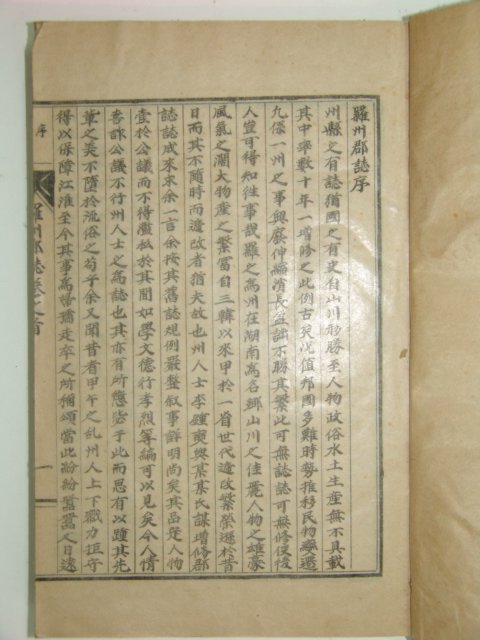 羅州郡誌序
州縣之有誌猶國之有史自山川形勝至人物政俗水土生產無不具載
其中率數十年一增修之此例古矣況値邦國多難時勢推移民物變遷
凡係一州之事興廢伸縮消長盈詘不勝其繁此可無誌誌可無修俾後
人豈可得知往事哉羅之爲州在湖南爲名鄕山川之佳麗人物之雄豪
風氣之濶大物產之繁富自三韓以來甲於一省世代遞改繁榮遜於昔
日而其不隨時而遞改者猶夫故也州人士李鍾奭與某某氏謀增修郡
誌誌成來求余一言余按其舊誌規例嚴整叙事詳明尙矣其品定人物
壹於公議而不得濫私於其間如學文德行孝烈等編可以見矣今人情
公議不行州人士之爲誌也其亦有所懲毖于此而思有以踵其先
輩之美不隨於流俗之苟乎余又聞昔者甲午之乱州人上下戮力拒守
得以保障江淮至今其事爲婦孺走卒之所稱頌當此紛紛囂囂之日遠
序
羅州郡誌卷之首
一